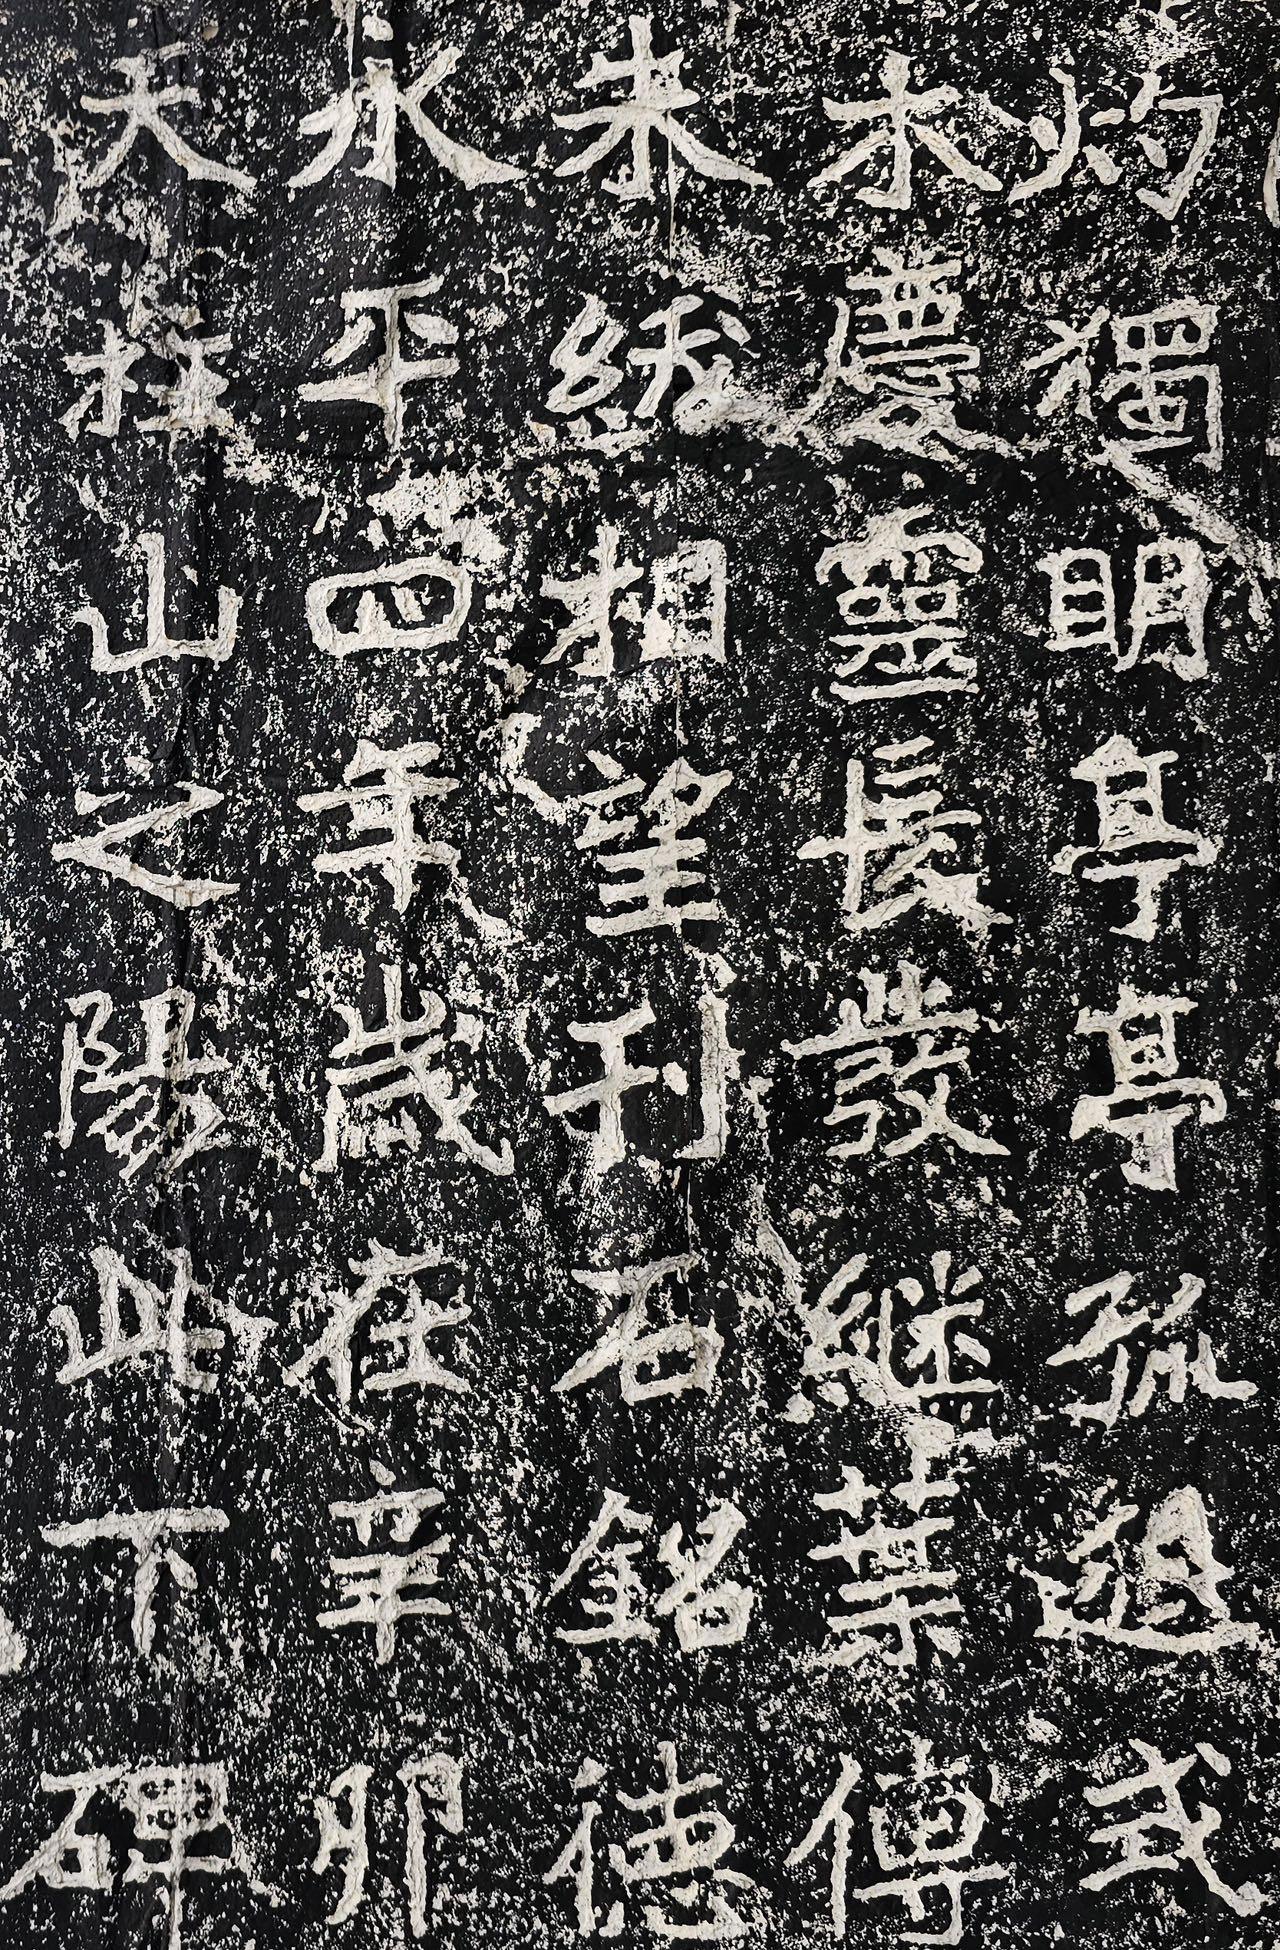 灼獨明亭亭孤逈式
木慶靈長發继葉傳
朱紱相望刊石銘德
永平四年歲在辛卯
天柱山之陽此下碑